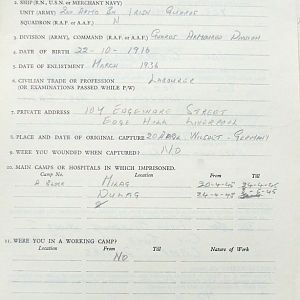 2. SHIP (R.N., U.S.N. or MERCHANT NAVY)
UNIT (ARMY) 2ND ARMD BN IRISH GUARDS
SQUADRON (R.A.F. or A.A.F.) N
3. DIVISION (ARMY), COMMAND (R.A.F. or A.A.F.) GUARDS ARMOURED DIVISION
4. DATE OF BIRTH 22-10-1916
5. DATE OF ENLISTMENT MARCH 1936
6. CIVILIAN TRADE OR PROFESSION LABOURER
(OR EXAMINATIONS PASSED WHILE P/W)
7. PRIVATE ADDRESS 104 EDGEWARE STREET
EDGE HILL LIVERPOOL
8. PLACE AND DATE OF ORIGINAL CAPTURE GERMANY
9. WERE YOU WOUNDED WHEN CAPTURED? NO
10. MAIN CAMPS OR HOSPITALS IN WHICH IMPRISONED.
Camp No. Location From To
20-4-45 24-4-45
24-4-45
11. WERE YOU IN A WORKING CAMP?
Location From To Nature of Work
NO